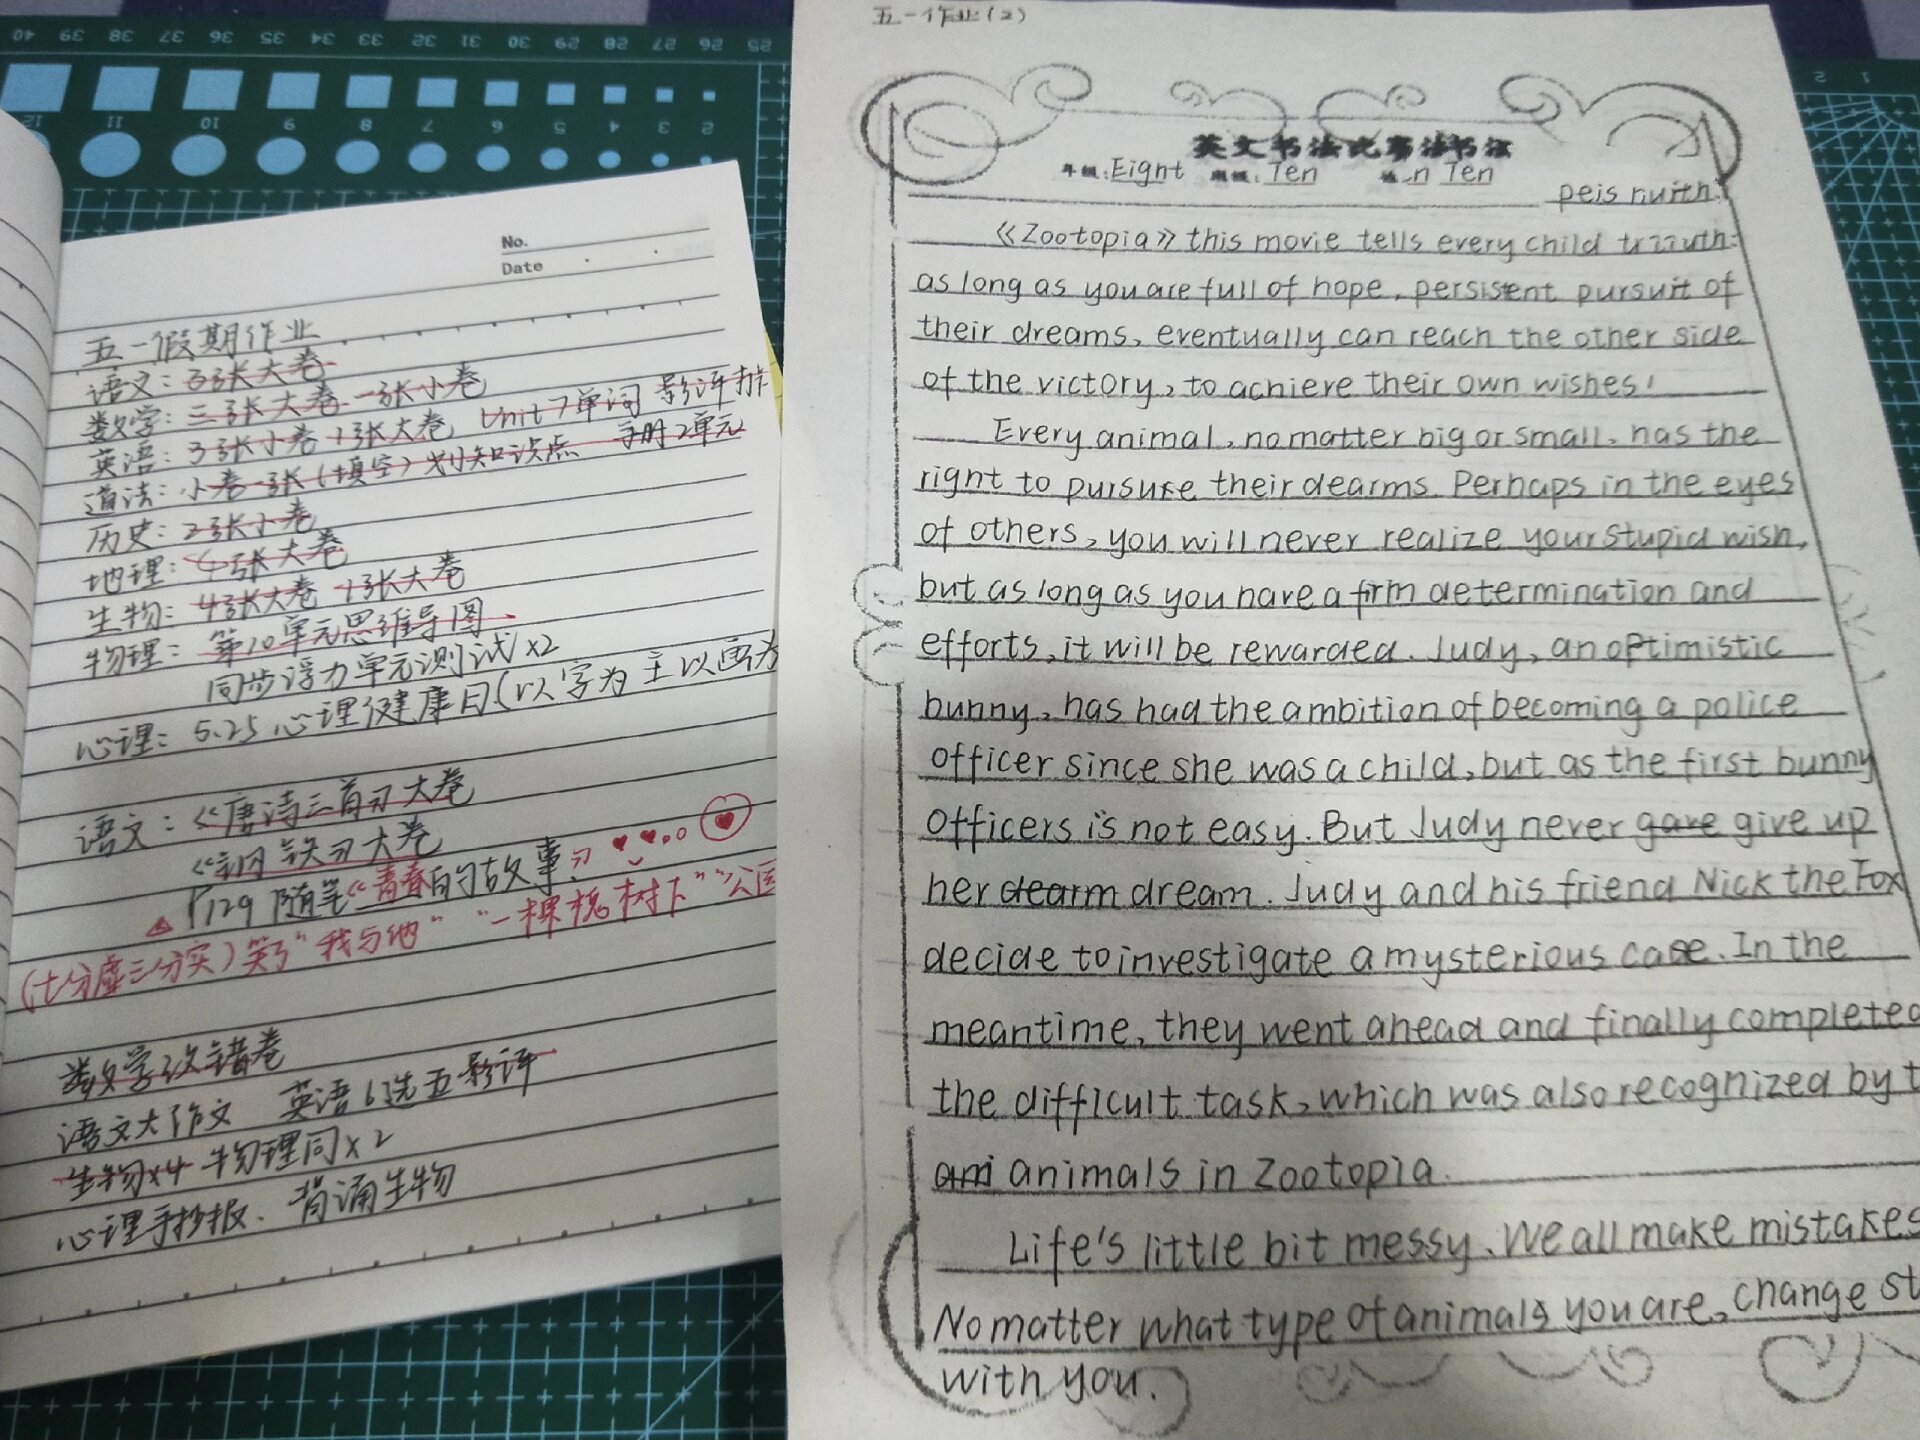 五一假期作业
语文：3张大卷
数学：三张大卷 一张小卷
英语：3张小卷 1张大卷 Unit 7单词 影评
道法：小卷一张（填空）划知识点 2单元
历史：2张小卷
地理：4张大卷
生物：4张大卷 1张大卷
物理：第10单元思维导图
同步浮力单元测试×2
心理：5.25心理健康日（以字为主以画为
语文：《唐诗三首》大卷
《钢铁》大卷
P129 随笔《青春的故事》
（七分虚三分实）笑了“我与她” “一棵槐树下” “公园
数学改错卷
语文大作文 英语6选五影评
生物×4 物理同×2
心理手抄报、背诵生物
五一作业(2)
英文书法比赛
年级：Eight 班级：Ten Ten
《Zootopia》this movie tells every child
as long as you are full of hope, persistent pursuit of
their dreams, eventually can reach the other side
of the victory, to achieve their own wishes!
Every animal, no matter big or small, has the
right to pursure their dearms. Perhaps in the eyes
of others, you will never realize your stupid wish,
but as long as you have a firm determination and
efforts, it will be rewarded. Judy, an optimistic
bunny, has had the ambition of becoming a police
officer since she was a child, but as the first bunny
officers is not easy. But Judy never gave give up
her dearm dream. Judy and his friend Nick the Fox
decide to investigate a mysterious case. In the
meantime, they went ahead and finally completed
the difficult task, which was also recognized by t
ani animals in Zootopia.
Life's little bit messy. We all make mistakes
No matter what type of animals you are, change st
with you.
40 39 38 37 36 35 34 33 32 31 30 29 28 27 26 25
12 11 10 9 8 7 6 5 4 3 2
No.
Date
2 1